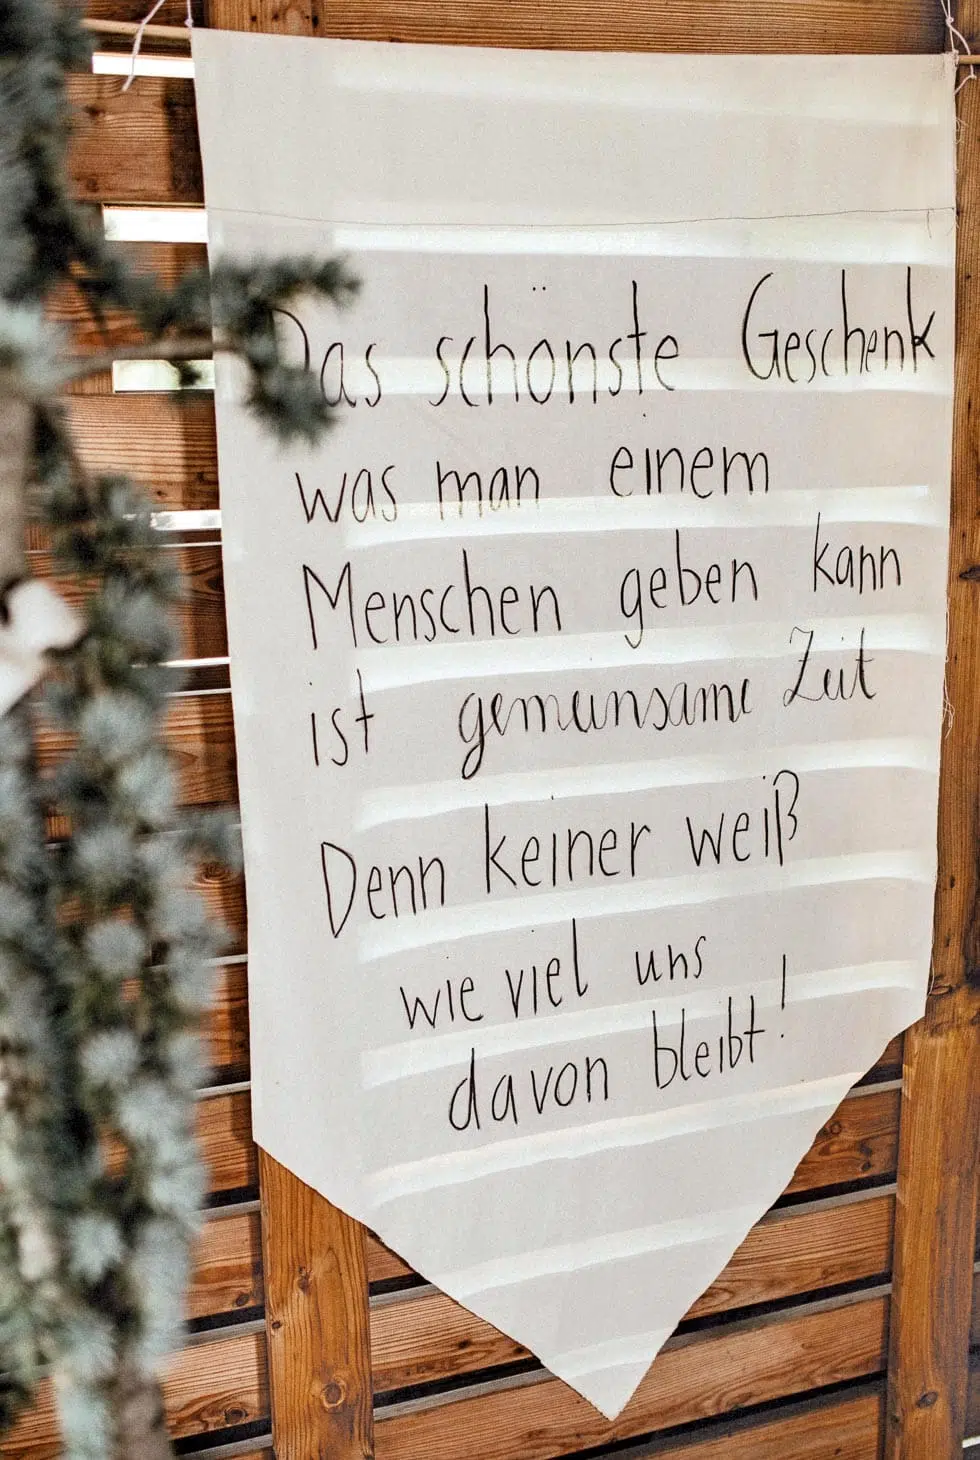 Das schönste Geschenk
was man einem
Menschen geben kann
ist gemeinsame Zeit
Denn keiner weiß
wie viel uns
davon bleibt!